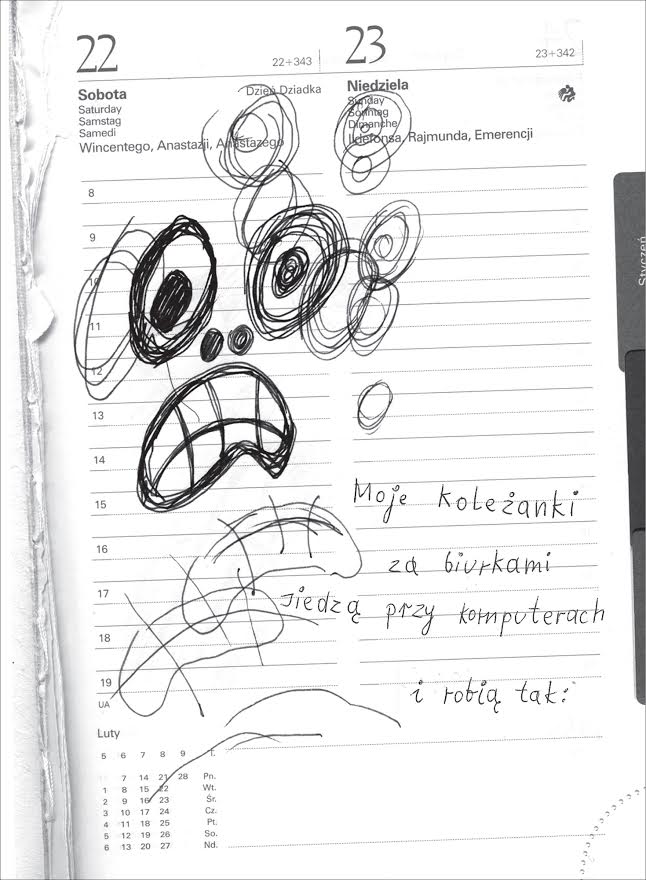 22
22+343
Sobota
Dzień Dziadka
Saturday
Samstag
Samedi
Wincentego, Anastazji, Anastazego
8
9
10
11
12
13
14
15
16
17
18
19
UA
Luty
5 6 7 8 9 T.
7 14 21 28 Pn.
1 8 15 22 Wt.
2 9 16 23 Śr.
3 10 17 24 Cz.
4 11 18 25 Pt.
5 12 19 26 So.
6 13 20 27 Nd.
23
23+342
Niedziela
Sunday
Sonntag
Dimanche
Ildefonsa, Rajmunda, Emerencji
Moje koleżanki
za biurkami
siedzą przy komputerach
i robią tak:
Styczeń